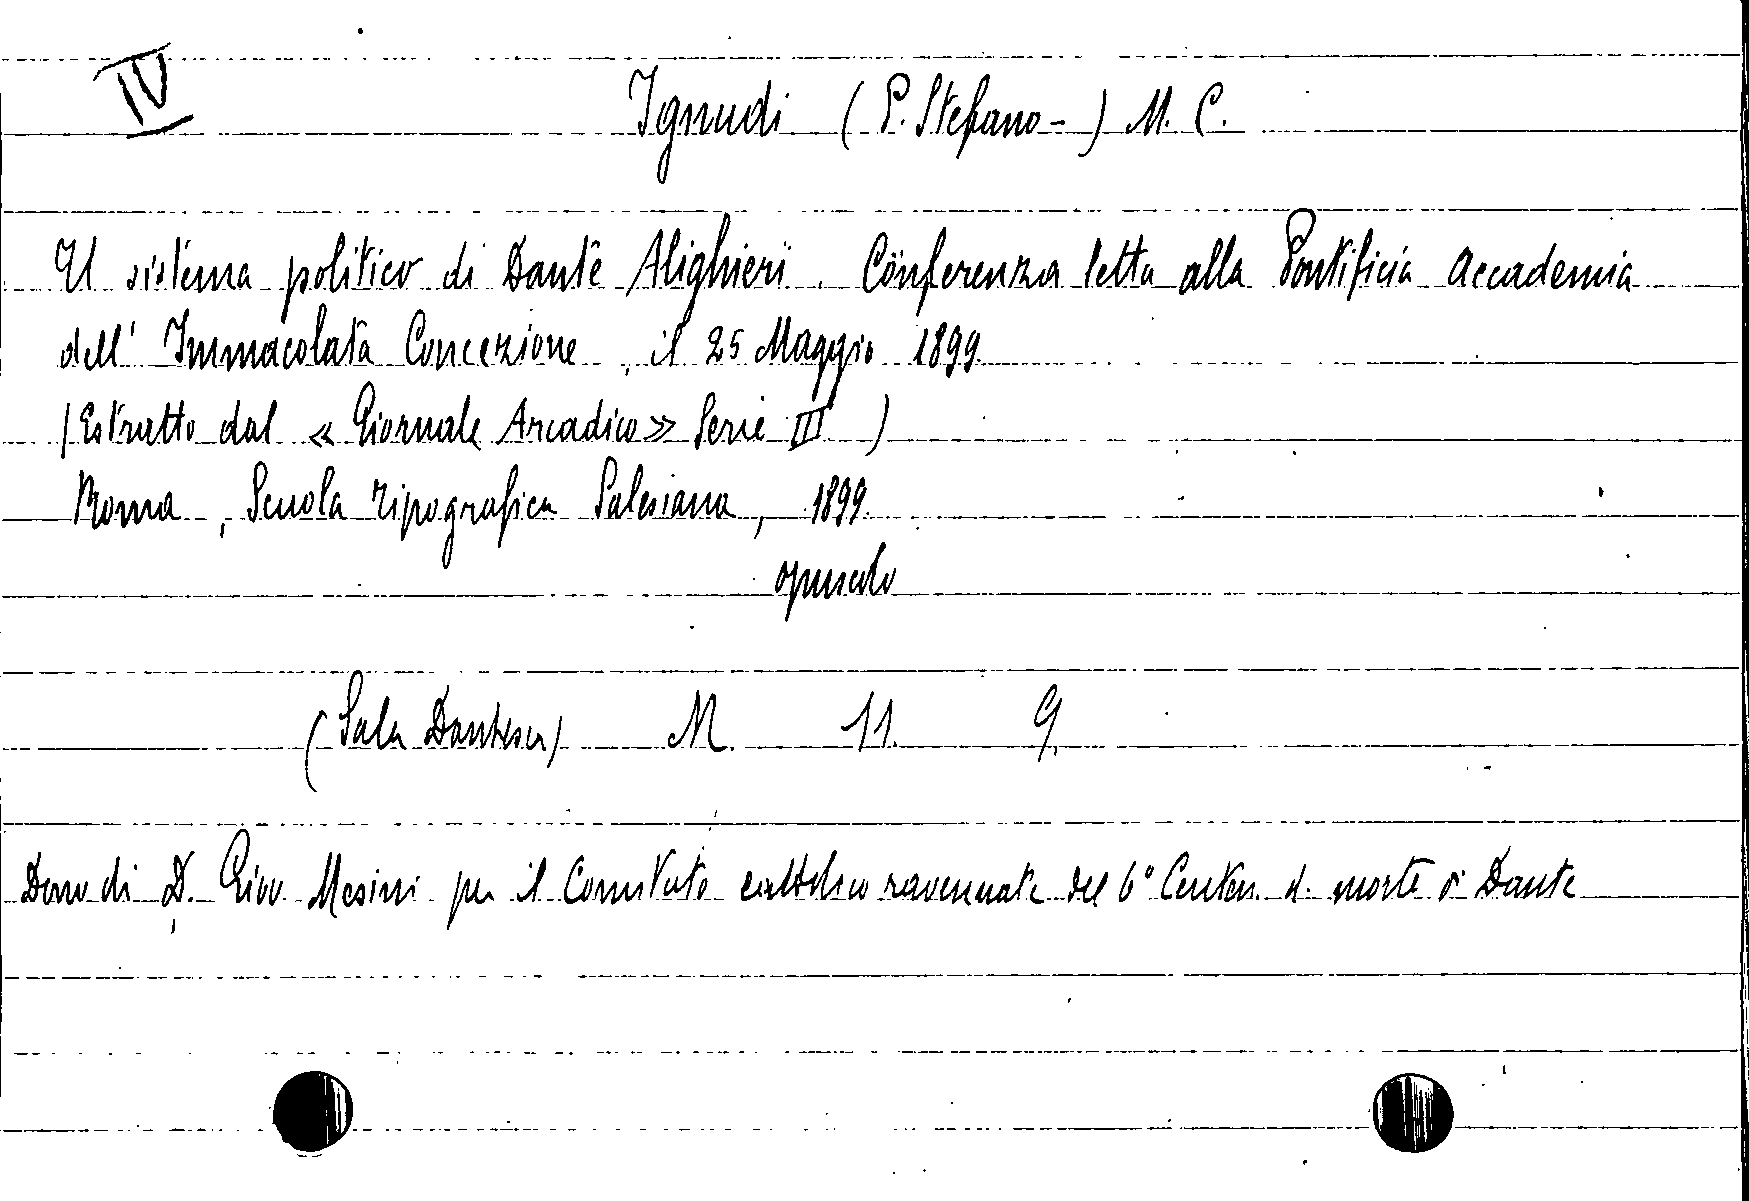 IV
Ignudi (P. Stefano-) M. C.
Il sistema politico di Dante Alighieri. Conferenza letta alla Pontificia Accademia
dell' Immacolata Concezione, il 25 Maggio 1899.
(Estratto dal « Giornale Arcadico » Serie III)
Roma, Scuola Tipografica Salesiana, 1899.
opuscolo
(Sala Dantesca) M. 11. 9.
Dono di D. Giov. Mesini per il Comitato cattolico ravennate del 6° Centen. d. morte di Dante